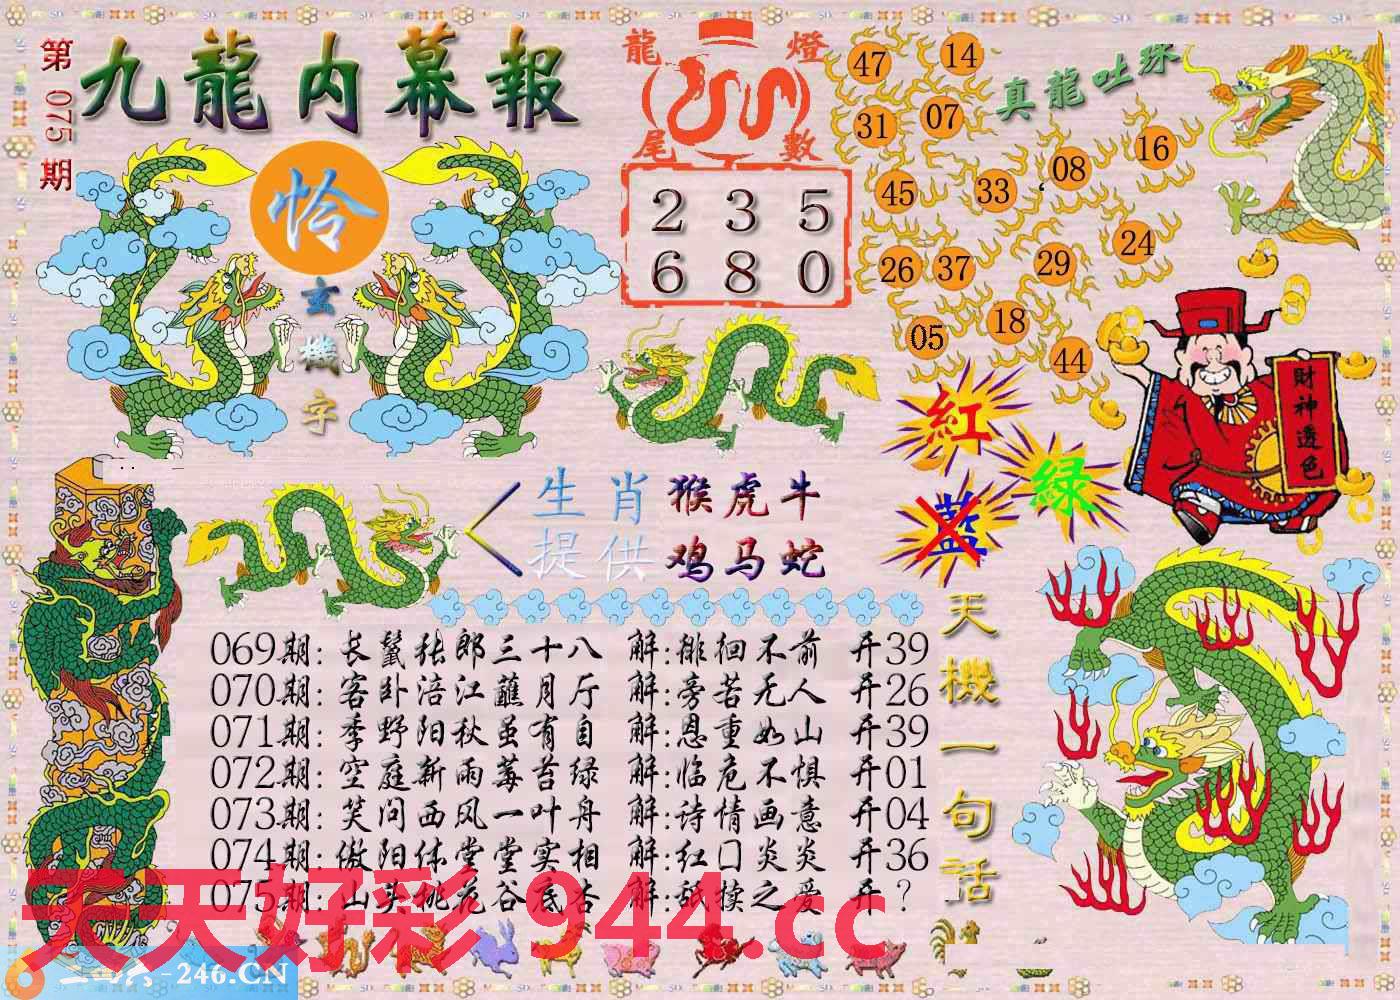 第075期
九龍内幕報
怜
玄機字
龍燈尾數
2 3 5
6 8 0
真龍吐珠
47 14
31 07
45 33 08 16
26 37 29 24
05 18 44
紅
绿
藍
財神透色
生肖提供
猴虎牛
鸡马蛇
天機一句話
069期:长鬣张郎三十八 解:徘徊不前 开39
070期:客卧涪江蘸月厅 解:旁若无人 开26
071期:季野阳秋虽有自 解:恩重如山 开39
072期:空庭新雨莓苔绿 解:临危不惧 开01
073期:笑问西风一叶舟 解:诗情画意 开04
074期:傲阳体堂堂实相 解:红门炎炎 开36
075期:山头桃花谷底杏 解:舐犊之爱 开?
天天好彩 944.cc
二四六-246.CN